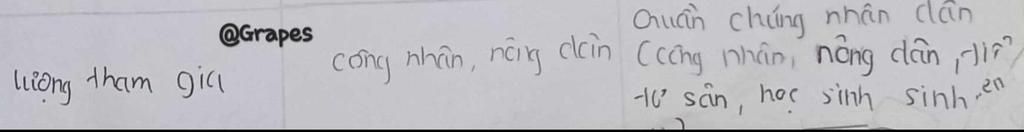 @Grapes
lượng tham gia
công nhân, nông dân
Quần chúng nhân dân
(công nhân, nông dân, tiểu
tư sản, học sinh sinh viên